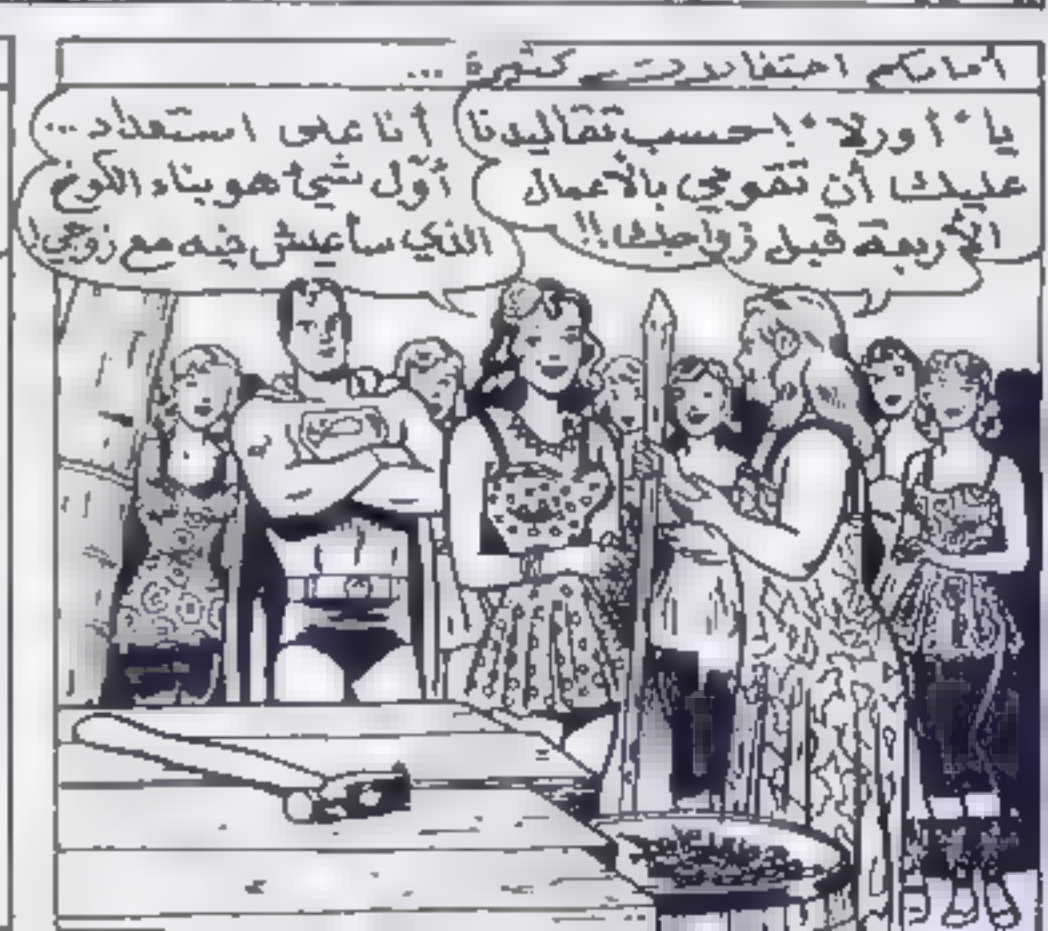 أمامكم احتفالات كثيرة ...
يا "أورلا"! حسب تقاليدنا
عليك أن تقومي بالأعمال
الأربعة قبل زواجك!!
أنا على استعداد ...
أوّل شيئ هو بناء الكوخ
الذي سأعيش فيه مع زوجي!